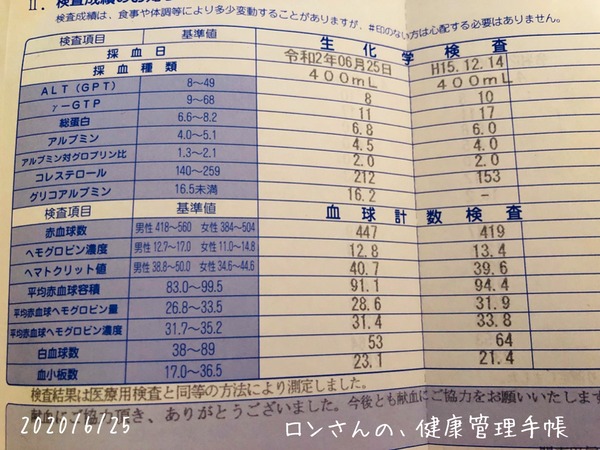 検査成績は、食事や体調等により多少変動することがありますが、#印のない方は心配する必要はありません。
検査項目 基準値 生化学検査
採血日 令和2年06月25日 H15.12.14
採血種類 400mL 400mL
ALT(GPT) 8〜49 8 10
γ-GTP 9〜68 11 17
総蛋白 6.6〜8.2 6.8 6.0
アルブミン 4.0〜5.1 4.5 4.0
アルブミン対グロブリン比 1.3〜2.1 2.0 2.0
コレステロール 140〜259 212 153
グリコアルブミン 16.5未満 16.2 -
検査項目 基準値 血球計数検査
赤血球数 男性 418〜560 女性 384〜504 447 419
ヘモグロビン濃度 男性 12.7〜17.0 女性 11.0〜14.8 12.8 13.4
ヘマトクリット値 男性 38.8〜50.0 女性 34.6〜44.6 40.7 39.6
平均赤血球容積 83.0〜99.5 91.1 94.4
平均赤血球ヘモグロビン量 26.8〜33.5 28.6 31.9
平均赤血球ヘモグロビン濃度 31.7〜35.2 31.4 33.8
白血球数 38〜89 53 64
血小板数 17.0〜36.5 23.1 21.4
検査結果は医療用検査と同等の方法により測定しました。
献血にご協力頂き、ありがとうございました。今後とも献血にご協力をお願いいたします
2020/6/25 ロンさんの、健康管理手帳